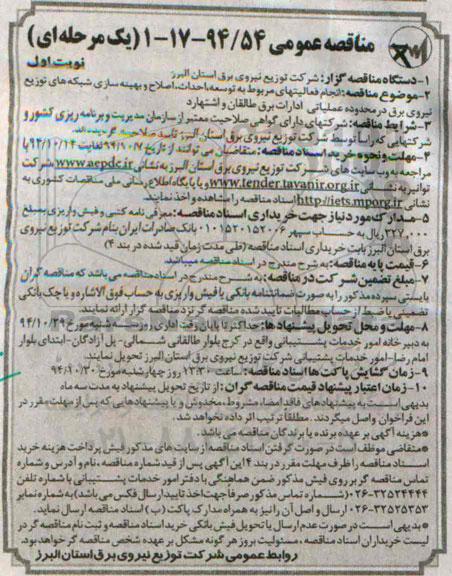 مناقصه عمومی ۹۴/۵۴-۱۷-۱ (یک مرحله ای)
نوبت اول
۱-دستگاه مناقصه گزار: شرکت توزیع نیروی برق استان البرز
۲-موضوع مناقصه: انجام فعالیتهای مربوط به توسعه، احداث، اصلاح و بهینه سازی شبکه های توزیع
نیروی برق در محدوده عملیاتی ادارات برق طالقان و اشتهارد
۳-شرایط مناقصه: شرکتهای دارای گواهی صلاحیت معتبر از سازمان مدیریت و برنامه ریزی کشور و
شرکتهایی که رأساً توسط شرکت توزیع نیروی برق استان البرز تأیید صلاحیت گردیده اند.
۴-مهلت و نحوه خرید اسناد مناقصه: متقاضیان می توانند از تاریخ لغایت ۹۴/۱۰/۱۴ با
مراجعه به وب سایت های شرکت توزیع نیروی برق استان البرز به نشانی www.aepdc.ir، شرکت
توانیر به نشانی www.tender.tavanir.org.ir و یا پایگاه اطلاع رسانی ملی مناقصات کشوری به
نشانی http://iets.mporg.ir اسناد مناقصه را مشاهده و اخذ نمایند.
۵-مدارک مورد نیاز جهت خریداری اسناد مناقصه: معرفی نامه کتبی و فیش واریزی بمبلغ
۳۲۷,۰۰۰ ریال به حساب سپهر ۰۱۰۱۵۲۰۱۵۲۰۰۶ بانک صادرات ایران بنام شرکت توزیع نیروی
برق استان البرز بابت خریداری اسناد مناقصه (طی مدت زمان قید شده در بند ۴)
۶-قیمت پایه مناقصه: به شرح مندرج در اسناد مناقصه میباشد.
۷-مبلغ تضمین شرکت در مناقصه: به شرح مندرج در اسناد مناقصه می باشد که مناقصه گران
بایستی سپرده مذکور را به صورت ضمانتنامه بانکی یا فیش واریزی به حساب فوق الاشاره و یا چک بانکی
تضمینی یا ضبط از حساب مطالبات تایید شده مناقصه گر نزد مناقصه گزار ارائه نمایند.
۸-مهلت و محل تحویل پیشنهاد ها: حداکثر تا پایان وقت اداری روز سه شنبه مورخ ۹۴/۱۰/۲۹
به دبیر خانه امور خدمات پشتیبانی واقع در کرج بلوار طالقانی شمالی-پل آزادگان-ابتدای بلوار
امام رضا-امور خدمات پشتیبانی شرکت توزیع نیروی برق استان البرز تحویل نمایند.
۹-زمان گشایش پاکت ها اسناد مناقصه: ساعت ۱۳:۳۰ روز چهارشنبه مورخ ۹۴/۱۰/۳۰
۱۰-زمان اعتبار پیشنهاد قیمت مناقصه گران: از تاریخ تحویل پیشنهاد به مدت سه ماه
بدیهی است به پیشنهادهای فاقد امضا، مشروط، مخدوش و یا پیشنهادهایی که پس از مهلت مقرر در
این فراخوان واصل میگردند. مطلقا ترتیب اثر داده نخواهد شد.
*هزینه آگهی بر عهده برنده یا برندگان مناقصه می باشد.
*متقاضی موظف است در صورت گرفتن اسناد مناقصه از سایت های مذکور فیش پرداخت هزینه خرید
اسناد مناقصه را ظرف مهلت مقرر در بند ۴ این آگهی پس از قید شماره مناقصه، نام و آدرس و شماره
تماس مناقصه گر بر روی فیش مذکور ضمن هماهنگی با دفتر امور خدمات پشتیبانی با شماره تلفن
۰۲۶-۳۲۵۲۴۴۴۴ (شماره تماس مذکور صرفاً جهت اخذ تایید ارسال فکس می باشد) به شماره نمابر
۰۲۶-۳۲۵۲۵۳۵۳ ارسال و اصل آن را نیز به همراه مدارک پاکت (ب) اسناد مناقصه ارسال نماید.
*بدیهی است در صورت عدم ارسال یا تحویل فیش بانکی خرید اسناد مناقصه و ثبت نام مناقصه گر در
لیست خریداران اسناد مناقصه، مسئولیت بروز هر گونه مشکل بر عهده شخص مناقصه گر خواهد بود.
روابط عمومی شرکت توزیع نیروی برق استان البرز